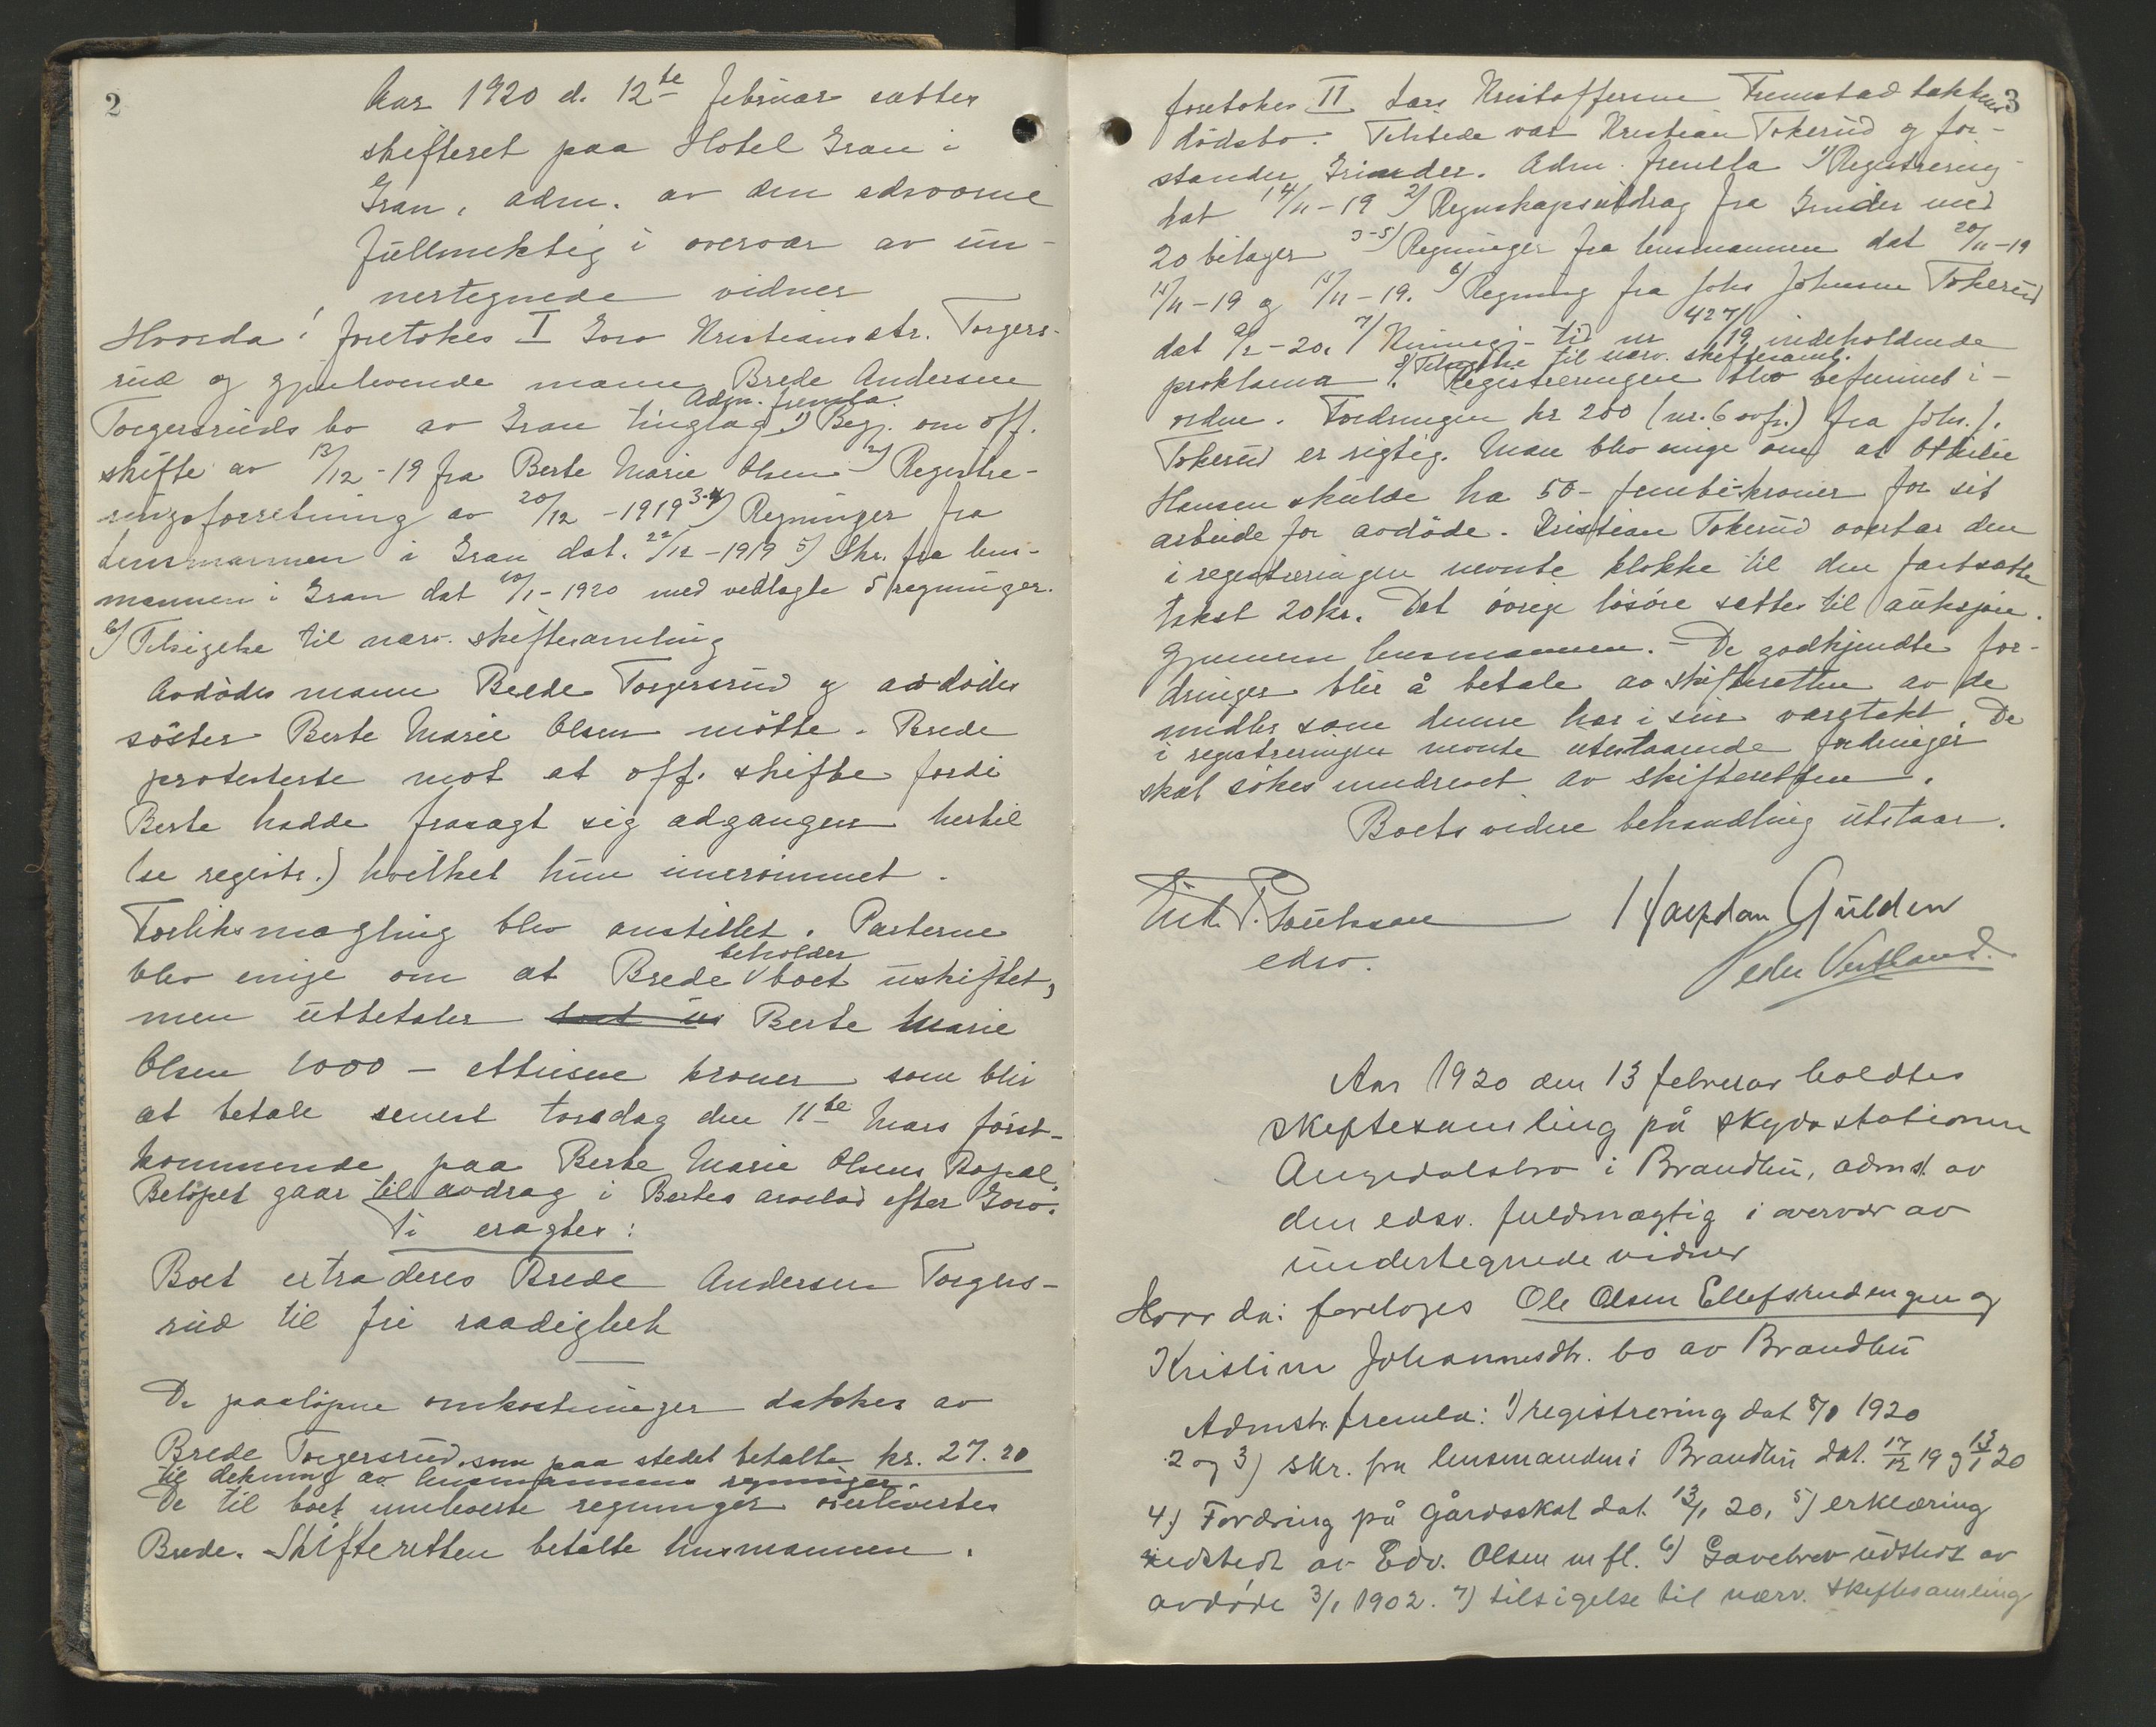 2
Aar 1920 d. 12te februar sattes
skifteret paa Hotel Gran i
Gran, adm. av den edsvorne
fullmektig i overvær av un-
nertegnede vidner
Hvorda: foretokes I Goro Kristiansdtr. Torgers-
rud og gjenlevende mann Brede Andersen
Adm. fremla
Torgersruds bo av Gran tinglag. 1) Begj. om off.
skifte av 13/12-19 fra Berte Marie Olsen 2) Registre-
ringsforretning av 20/12-1919 3-4) Regninger fra
lensmannen i Gran dat. 22/12-1919 5) Skr. fra lens-
mannen i Gran dat 10/1-1920 med vedlagte 5 regninger.
6) Tilsigelse til nærv. skiftesamling
Avdødes mann Brede Torgersrud og avdødes
søster Berte Marie Olsen møtte. Brede
protesterte mot at off. skifte fordi
Berte hadde frasagt sig adgangen hertil
(se registr.) hvilket hun innrømmet.
Forliksmægling blev anstillet. Parterne
beholder
blev enige om at Brede boet uskiftet,
men utbetaler Berte Marie
Olsen 1000 - ettusen kroner som blir
at betale senest torsdag den 11te Mars først-
kommende paa Berte Marie Olsens
Beløpet gaar til avdrag i Bertes arvelod efter Goro.
Ti eragtes:
Boet extraderes Brede Andersen Torgers-
rud til fri raadighet
De paaløpne omkostninger dækkes av
Brede Torgersrud, som paa stedet betalte kr. 27.20
til dekning av lensmannens regninger.
De til boet innleverte regninger overleveres
Brede. Skifteretten betalte lensmannen.
3
foretokes II Lars Kristoffersen Fremstad
dødsbo. Tilstede var Kristian Tokerud og for-
stander Grinder. Adm. fremla 1) Registrering
dat 14/11-19 2) Regnskapsutdrag fra Grinder med
20 bilager 3-5) Regninger fra lensmannen dat 20/11-19
11/11-19 og 11/11-19. 6) Regning fra Johs Johnsen Tokerud
dat 9/2-20, 7) tid nr 427/19 indeholdende
8) Tilsigelse til nærv. skiftesaml.
proklama. Registreringen blev befunnet i
orden. Fordringen kr 200 (nr. 6 ovf.) fra Johs. J.
Tokerud er rigtig. Man blev enige om at Othilie
Hansen skulde ha 50 - femti - kroner for sit
arbeide for avdøde. Kristian Tokerud overtar den
i registreringen nevnte klokke til den fastsatte
takst 20 kr. Det øvrige løsøre settes til auksjon
gjennem lensmannen. - De godkjendte for-
dringer blir å betale av skifteretten av de
midler som denne har i sin varetekt. De
i registreringen nevnte utestaaende fordringer
skal søkes inndrevet av skifteretten.
Boets videre behandling utstaar.
edsv.
Halfdan Gulden
Peder Vestland.
Aar 1920 den 13 februar holdtes
skiftesamling på skydsstationen
Augedalsbro i Brandbu, admst. av
den edsv. fuldmægtig i overvær av
undertegnede vidner
Hvor da: foretoges Ole Olsen Ellefsrudengen og
Kristine Johannesdtr. bo av Brandbu
Admstr. fremla: 1) registrering dat 8/1 1920
2 og 3) skr. fra lensmanden i Brandbu dat. 17/12 19 og 13/1 20
4) Fordring på gårdsskat dat. 13/1 20, 5) erklæring
utstedt av Edv. Olsen m fl. 6) Gavebrev udstedt av
avdøde 3/1 1902. 7) tilsigelse til nærv. skiftesamling